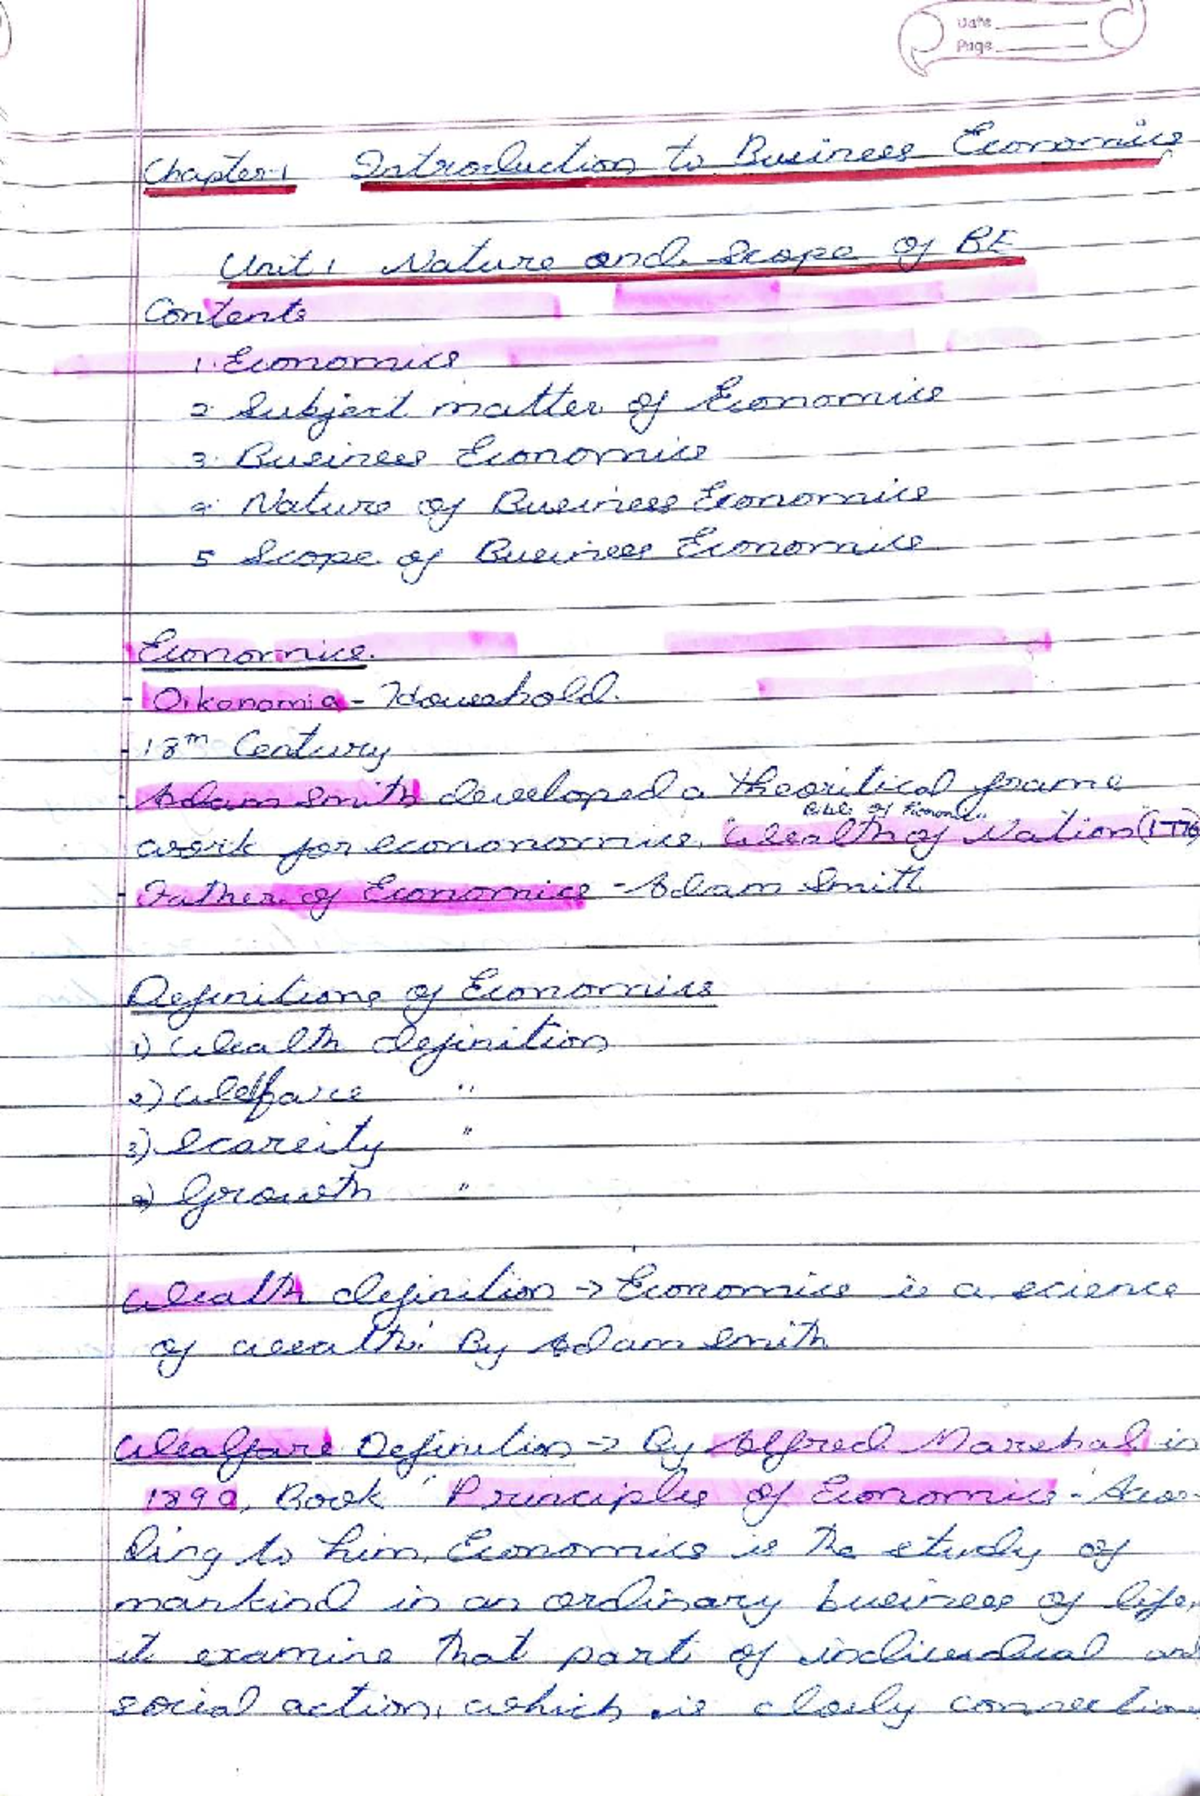 Date
Page
Chapter-1 Introduction to Business Economics
Unit 1 Nature and Scope of BE
Contents
1. Economics
2. Subject matter of Economics
3. Business Economics
4. Nature of Business Economics
5 Scope of Business Economics
Economics.
- Oikonomia - Household.
- 18th Century
- Adam Smith developed a theoritical frame
Bible of Econom..
work for econonomics. Wealth of Nation (1776)
- Father of Economics - Adam Smith
Definitions of Economics
1) Wealth definition
2) Welfare "
3) Scarcity "
4) Growth "
Wealth definition -> Economics is a science
of wealth. By Adam Smith
Wealfare Definition -> By Alfred Marshal in
1890, Book 'Principles of Economics' - Accor-
ding to him, Economics is the study of
mankind in an ordinary business of life,
it examine that part of individual and
social action, which is closly connection